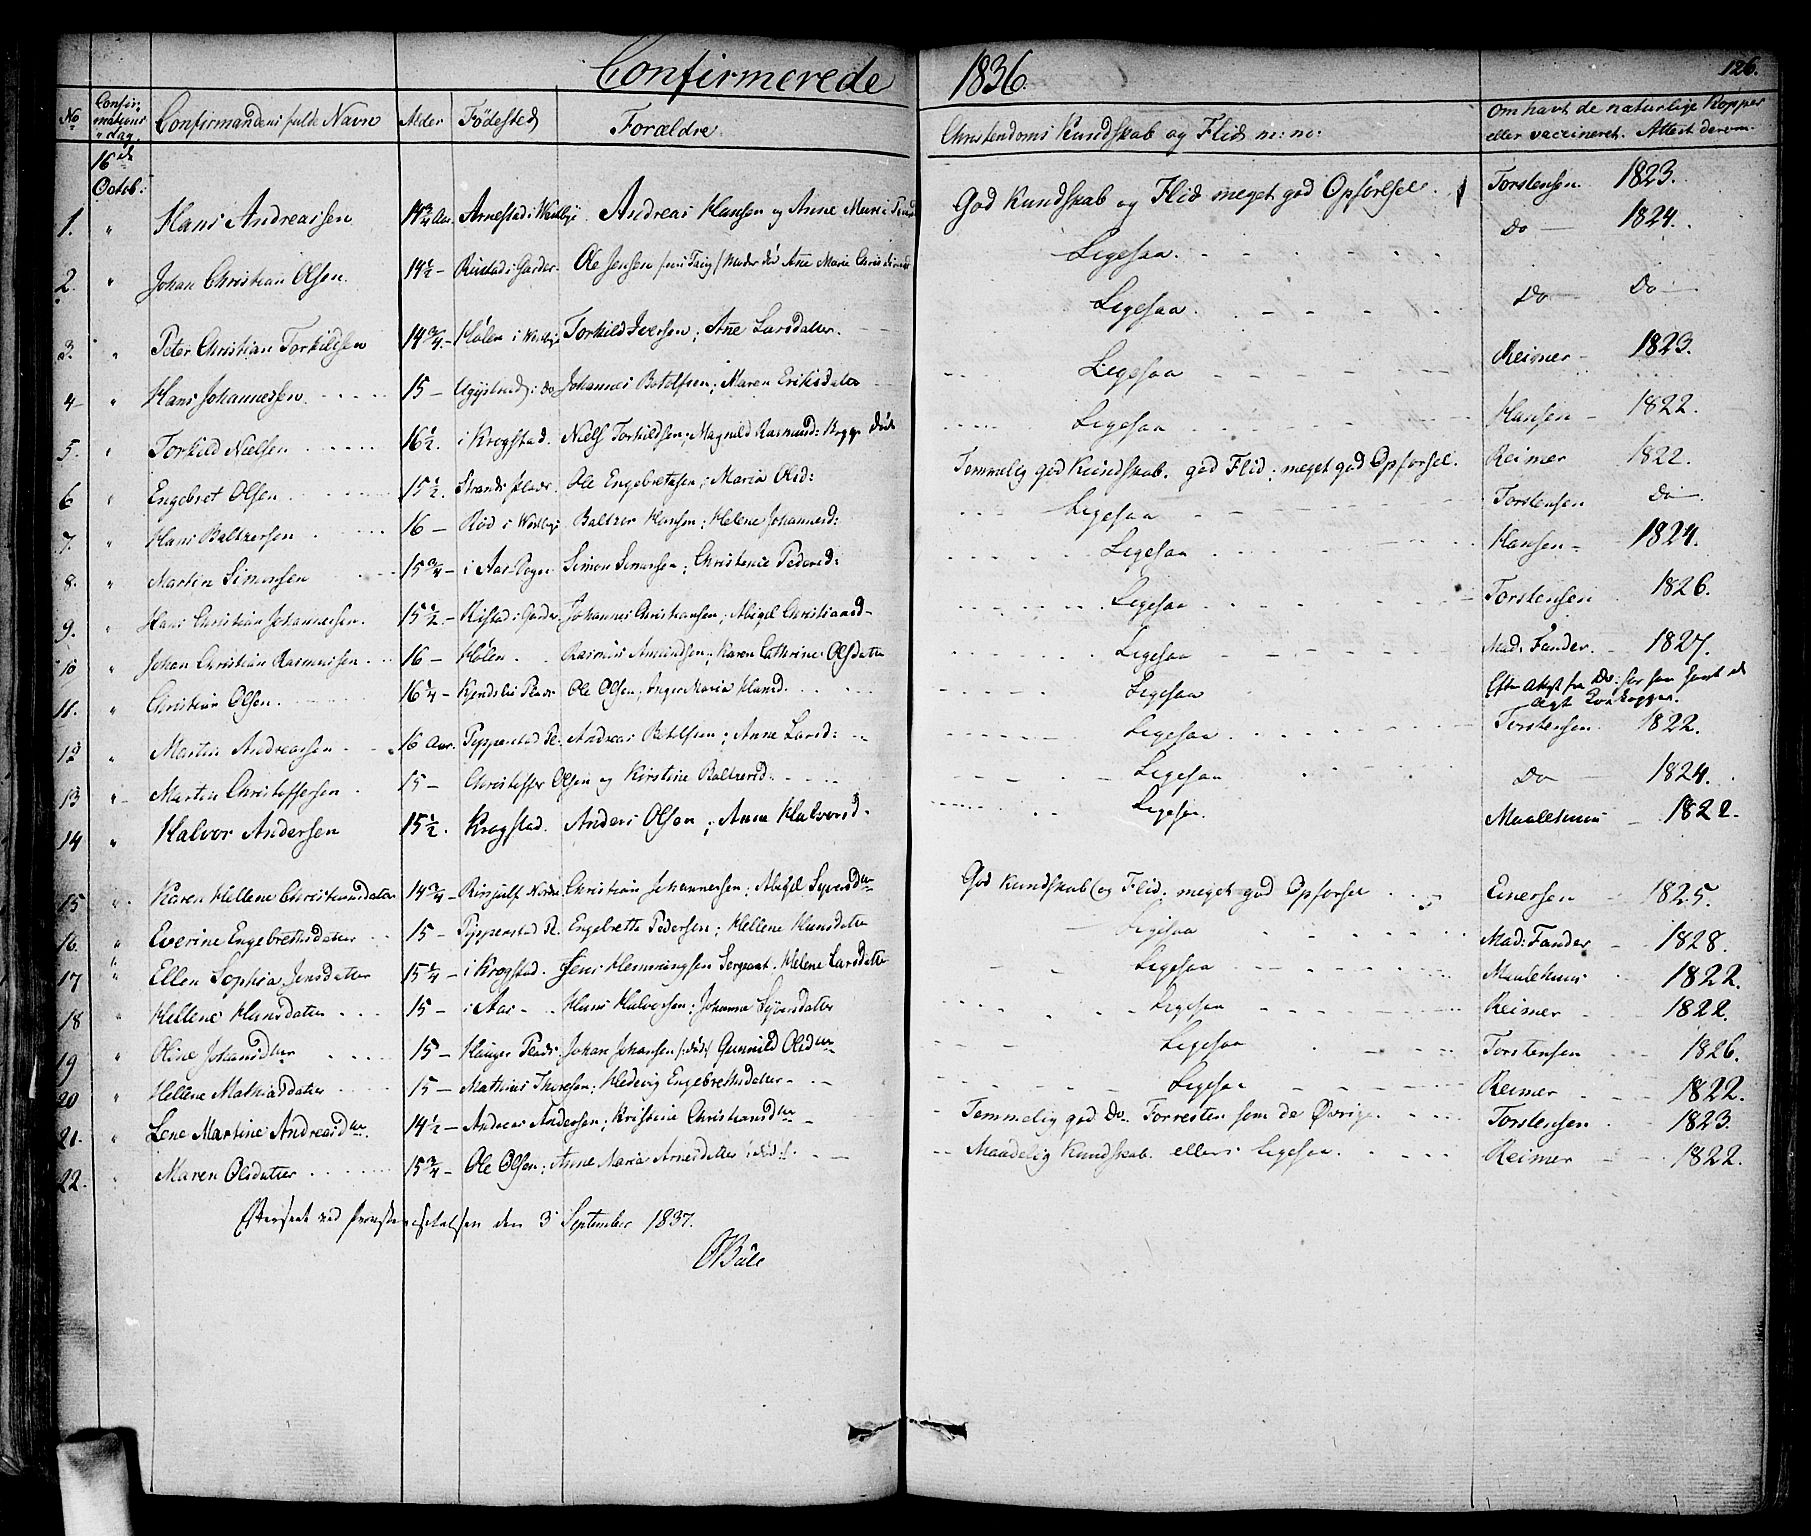 Confirmerede 1836. 126.
No Confirmations dag Confirmandens fulde Navn Alder Fødested Forældre. Christendoms Kundskab og Flid m: m: Om havt de naturlige Kopper eller vaccineret. Attest derom.
16de Octob:
1. " Hans Andreassen 14 3/4 Aar. Arnestad i Westbye. Andreas Hansen og Anne Marie God Kundskab og Flid meget god Opførelse. Torstensen 1823.
2. " Johan Christian Olsen. 14 1/2 - Ole Jensen Anne Marie Ligesaa. Do 1824.
3. " Peter Christian Torkildsen 14 3/4 - Hølen i Westbye Torkild Iversen; Ane Larsdatter. Ligesaa. Do Do
4 " Hans Johannessen 15 - i Do Johannes Botolfsen; Maren Eriksdatter Ligesaa Reimer 1823.
5. " Torkild Nielsen 16 1/2. i Krogstad. Niels Torkildsen; Magnild Rasmusd: Ligesaa Hansen 1822.
6 " Engebret Olsen 15 1/2. Ole Engebretsen; Maria Olsd: Temmelig god Kundskab. god Flid. meget god Opførsel. Reimer 1822.
7. " Hans Baltzersen 16 - Rød i Westbye Baltzer Hansen; Helene Johannesd: Ligesaa Torstensen Do
8. " Martin Simensen 15 3/4 - i Aas Simon Simensen; Christenie Pedersd: Ligesaa Hansen 1824.
9. " Hans Christian Johannessen. 15 1/2 - Johannes Christiansen; Abigel Christiansd Ligesaa Torstensen 1826.
10 " Johan Christian Rasmussen 16 - Hølen. Rasmus Amundsen; Karen Cathrine Olsdatter Ligesaa Mad: Fander. 1827.
11. " Christian Olsen. 16 1/4 - Ole Olsen; Inger Maria Hansd. Ligesaa
12 " Martin Andreassen 16 Aar. Pepperstad Andreas Botolfsen; Anne Larsd: Ligesaa Torstensen 1822.
13 " Martin Christoffersen 15 - Christoffer Olsen og Kirstine Baltzersd: Ligesaa Do 1824.
14 " Halvor Andersen 15 1/2. Krogstad. Anders Olsen; Anne Halvorsd. Ligesaa. 1822.
15 " Karen Hellene Christiansdatter 14 3/4 - Christian Johannessen; Abigel Syversdtr God Kundskab og Flid. meget god Opførsel Einersen 1825.
16 " Everine Engebretsdatter 15 - Pepperstad Engebrette Pedersen; Hellene Hansdatter Ligesaa Mad: Fander 1828.
17 " Ellen Sophia Jensdatter 15 1/4 - i Krogstad. Jens Hemmingsen Sergeant. Helene Larsdatter Ligesaa 1822.
18 " Hellene Hansdatter 15 - i Aas Hans Halvorsen; Johanna Syversdatter Ligesaa Reimer 1822.
19 " Oline Johansdtr 15 - Johan Johansen /: død :/ Gunnild Olsdtr Ligesaa Torstensen 1826.
20 " Hellene Mathiasdatter 15 - Mathias Thoresen; Hedevig Engebretsdatter Ligesaa Reimer 1822.
21. " Lene Martine Andreasdtr. 14 1/2 - Andreas Andersen; Kristine Christiansdtr Temmelig god Do. Forresten som de Øvrige Torstensen 1823.
22. " Maren Olsdatter 15 3/4 - Ole Olsen; Anne Maria Arnesdatter Maadelig Kundskab. ellers ligesaa. Reimer 1822.
Efterseet ved den 3 September 1837.